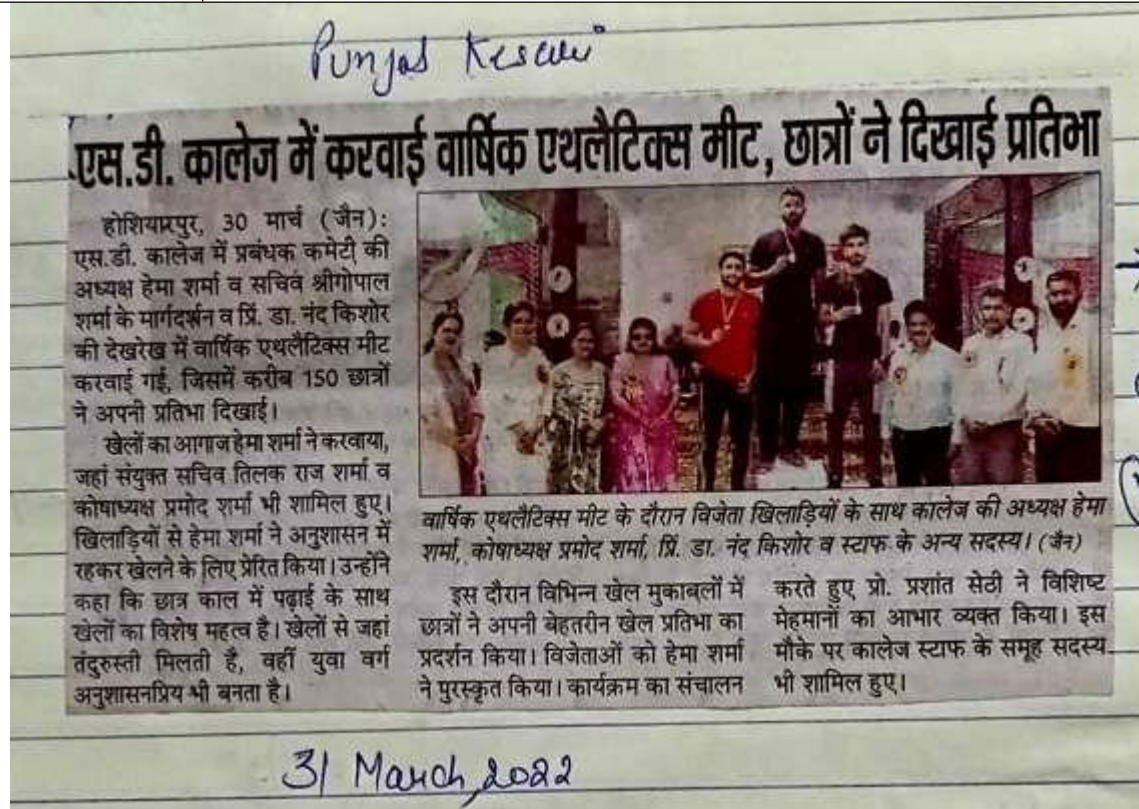 Punjab Kesari
एस.डी. कालेज में करवाई वार्षिक एथलैटिक्स मीट, छात्रों ने दिखाई प्रतिभा
होशियारपुर, 30 मार्च (जैन):
एस.डी. कालेज में प्रबंधक कमेटी की
अध्यक्ष हेमा शर्मा व सचिव श्रीगोपाल
शर्मा के मार्गदर्शन व प्रिं. डा. नंद किशोर
की देखरेख में वार्षिक एथलैटिक्स मीट
करवाई गई, जिसमें करीब 150 छात्रों
ने अपनी प्रतिभा दिखाई।
खेलों का आगाज हेमा शर्मा ने करवाया,
जहां संयुक्त सचिव तिलक राज शर्मा व
कोषाध्यक्ष प्रमोद शर्मा भी शामिल हुए।
खिलाड़ियों से हेमा शर्मा ने अनुशासन में
रहकर खेलने के लिए प्रेरित किया। उन्होंने
कहा कि छात्र काल में पढ़ाई के साथ
खेलों का विशेष महत्व है। खेलों से जहां
तंदुरुस्ती मिलती है, वहीं युवा वर्ग
अनुशासनप्रिय भी बनता है।
वार्षिक एथलैटिक्स मीट के दौरान विजेता खिलाड़ियों के साथ कालेज की अध्यक्ष हेमा
शर्मा, कोषाध्यक्ष प्रमोद शर्मा, प्रिं. डा. नंद किशोर व स्टाफ के अन्य सदस्य। (जैन)
इस दौरान विभिन्न खेल मुकाबलों में
छात्रों ने अपनी बेहतरीन खेल प्रतिभा का
प्रदर्शन किया। विजेताओं को हेमा शर्मा
ने पुरस्कृत किया। कार्यक्रम का संचालन
करते हुए प्रो. प्रशांत सेठी ने विशिष्ट
मेहमानों का आभार व्यक्त किया। इस
मौके पर कालेज स्टाफ के समूह सदस्य
भी शामिल हुए।
31 March, 2022